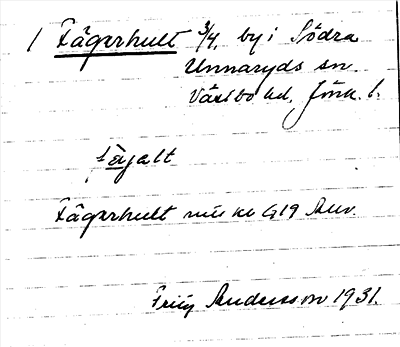 1 Fägerhult 3/4, by i Södra
Unnaryds sn.
Västbo hd, Jönk. l.
fägalt
Fägerhult
Andersson 1931.